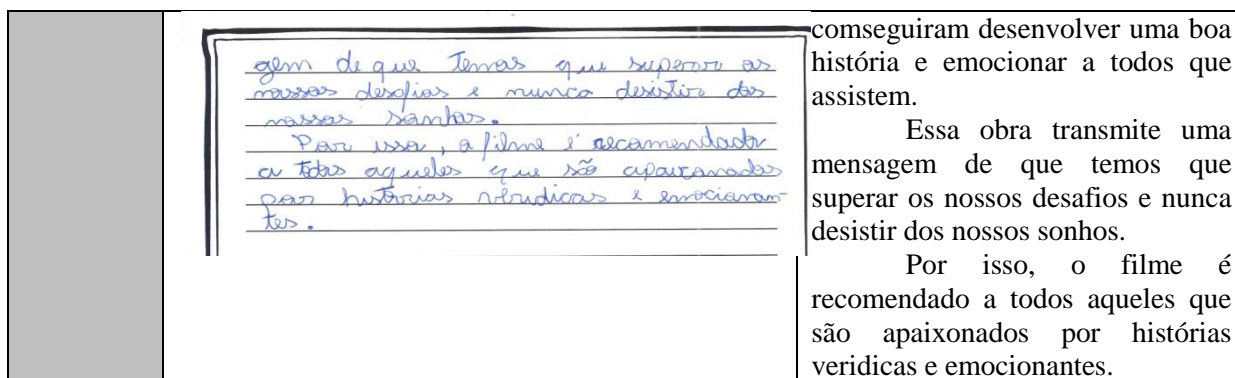 gem de que temos que superar os
nossos desafios e nunca desistir dos
nossos sonhos.
Por isso, o filme é recomendado
a todos aqueles que são apaixonados
por histórias verídicas e emocionan-
tes.
comseguiram desenvolver uma boa
história e emocionar a todos que
assistem.
Essa obra transmite uma
mensagem de que temos que
superar os nossos desafios e nunca
desistir dos nossos sonhos.
Por isso, o filme é
recomendado a todos aqueles que
são apaixonados por histórias
veridicas e emocionantes.